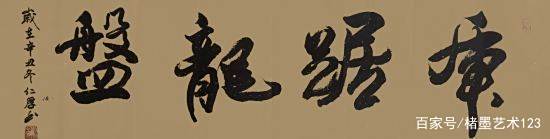 虎踞龍盤
歲在辛丑冬仁厚书
百家号/楮墨艺术123